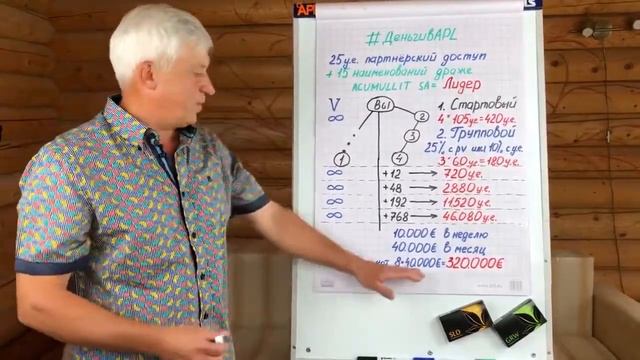 APL
#ДеньгиВAPL
25 у.е. партнёрский доступ
+ 15 наименований драже
ACUMULLIT SA = Лидер
V
∞
Вы
1
2
3
4
1. Стартовый
4*105уе=420уе.
2. Групповой
25% с pv или 10% с у.е.
3*60уе=180уе.
∞ +12 → 720 у.е.
∞ +48 → 2880 у.е.
∞ +192 → 11520 у.е.
∞ +768 → 46.080 у.е.
10.000€ в неделю
40.000€ в месяц
8*40.000€=320.000€
SLD
GRW